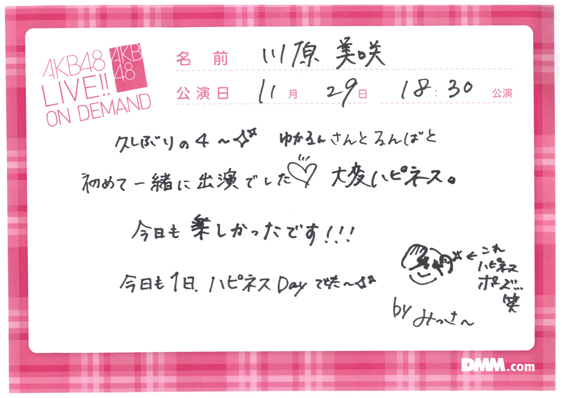 AKB48
LIVE!!
ON DEMAND
AKB
48
名前 川原美咲
公演日 11月 29日 18:30 公演
久しぶりの4〜☆ ゆかるんさんとるんばと
初めて一緒に出演でした♡ 大変ハピネス。
今日も楽しかったです!!!
今日も1日、ハピネスDayで咲〜☆
←これ
ハピネス
ポーズ…
笑
by みっさ〜
DMM.com